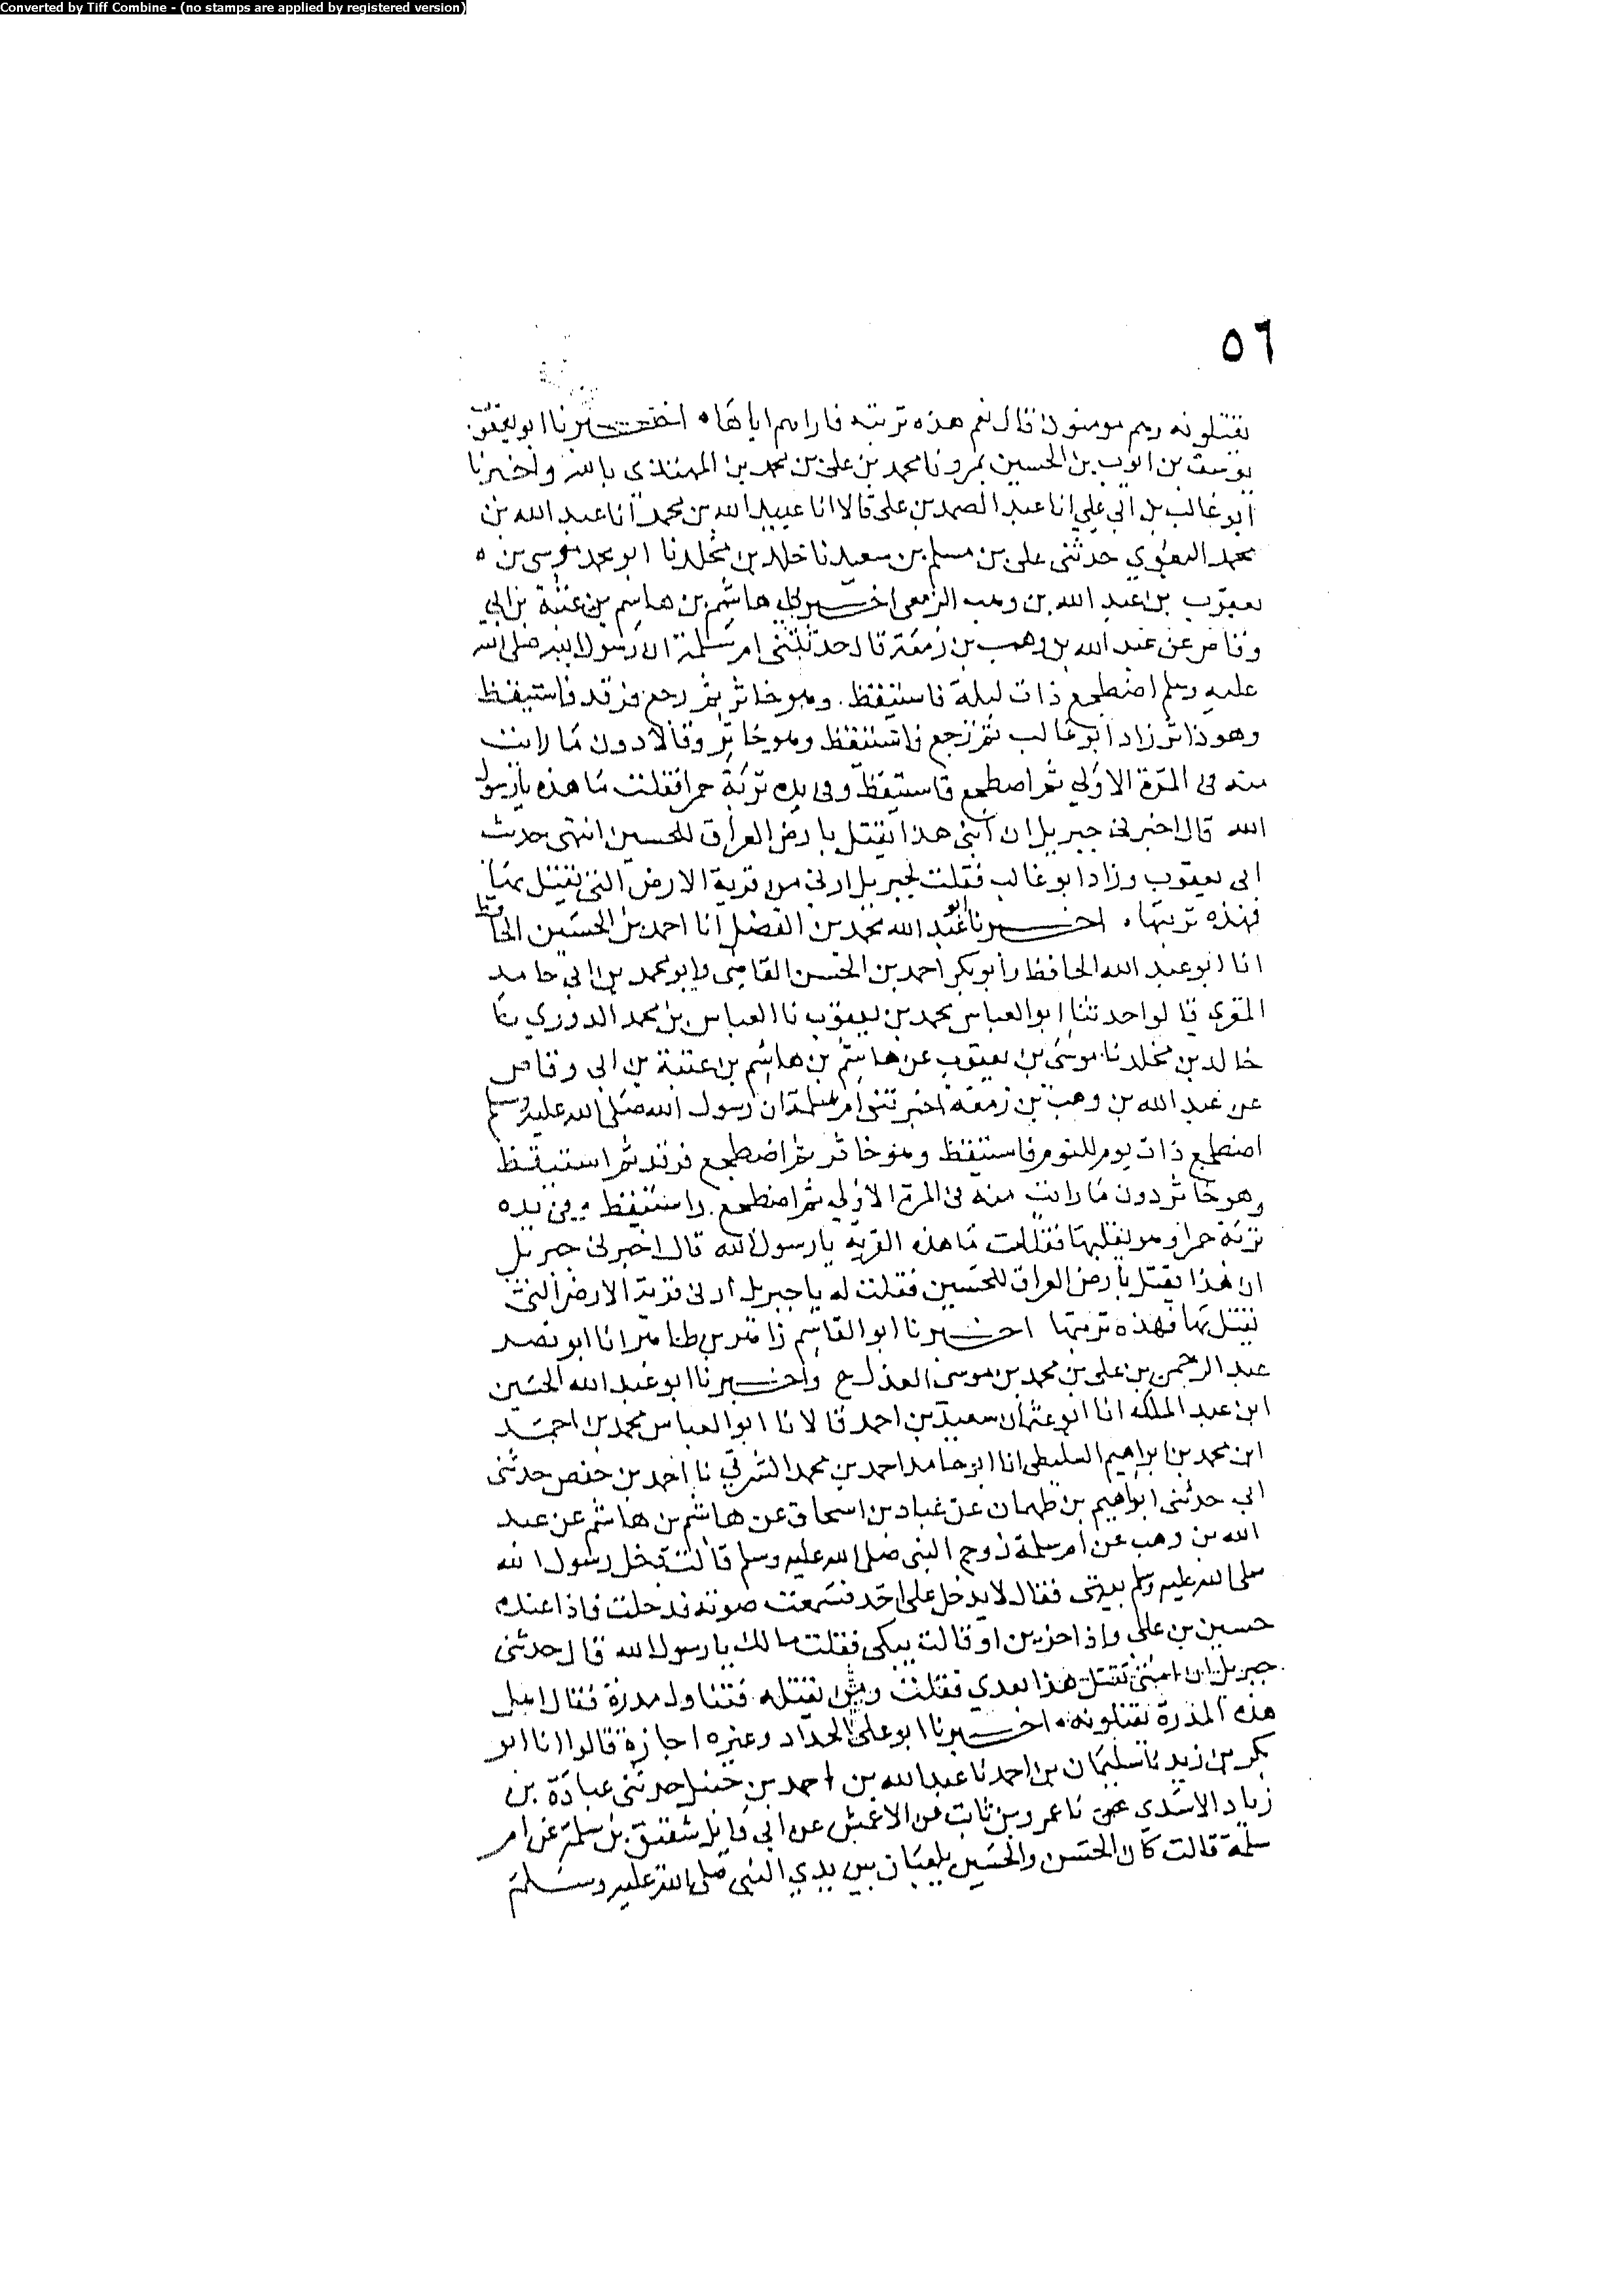 Converted by Tiff Combine - (no stamps are applied by registered version)
٥٦
يقتلونه وهم مومنون قال نعم هذه تربته فاراهم اياها ه اخبرنا ابو يعقوب
يوسف بن ايوب بن الحسين بمرو نا محمد بن علي بن محمد بن المهتدي بالله واخبرنا
ابو غالب بن ابي علي انا عبد الصمد بن علي قالا انا عبيد الله بن محمد انا عبد الله بن
محمد البغوي حدثني علي بن مسلم بن سعيد نا خالد بن مخلد نا ابو محمد موسى بن ه
يعقوب بن عبد الله بن وهب الزمعي اخبرني هاشم بن هاشم بن عتبة بن ابي
وقاص عن عبد الله بن وهب بن زمعة قال حدثتني ام سلمة ان رسول الله صلى الله
عليه وسلم اضطجع ذات ليلة فاستيقظ وهو خاثر ثم رجع فرقد فاستيقظ
وهو خاثر زاد ابو غالب ثم رجع فاستيقظ وهو خاثر وقالا دون ما رايت
منه في المرة الاولي ثم اضطجع فاستيقظ وفي يده تربة حمرا فقلت ما هذه يا رسول
الله قال اخبرني جبريل ان ابني هذا يقتل بارض العراق للحسين انتهى حديث
ابي يعقوب وزاد ابو غالب فقلت لجبريل ارني من تربة الارض التي يقتل بها
فهذه تربتها ه اخبرنا ابو عبد الله محمد بن الفضل انا احمد بن الحسين الحافظ
انا ابو عبد الله الحافظ وابو بكر احمد بن الحسن القاضي وابو محمد بن ابي حامد
المقري قالوا حدثنا ابو العباس محمد بن يعقوب نا العباس بن محمد الدوري نا
خالد بن مخلد نا موسى بن يعقوب عن هاشم بن هاشم بن عتبة بن ابي وقاص
عن عبد الله بن وهب بن زمعة اخبرتني ام سلمة ان رسول الله صلى الله عليه وسلم
اضطجع ذات يوم للنوم فاستيقظ وهو خاثر ثم اضطجع فرقد ثم استيقظ
وهو خاثر دون ما رايت منه في المرة الاولي ثم اضطجع واستيقظ وفي يده
تربة حمرا وهو يقلبها فقلت ما هذه التربة يا رسول الله قال اخبرني جبريل
ان هذا يقتل بارض العراق للحسين فقلت له يا جبريل ارني تربة الارض التي
يقتل بها فهذه تربتها اخبرنا ابو القاسم زاهر بن طاهر انا ابو نصر
عبد الرحمن بن علي بن محمد بن موسى العدل ح واخبرنا ابو عبد الله الحسين
ابن عبد الملك انا ابو عثمان سعيد بن احمد قالا نا ابو العباس محمد بن احمد
ابن محمد بن ابراهيم السليطي انا ابو حامد احمد بن محمد الشرقي نا احمد بن حفص حدثني
ابي حدثني ابراهيم بن طهمان عن عباد بن اسحاق عن هاشم بن هاشم عن عبد
الله بن وهب عن ام سلمة زوج النبي صلى الله عليه وسلم قالت دخل رسول الله
صلى الله عليه وسلم بيتي فقال لا يدخل علي احد فسمعت صوته فدخلت فاذا عنده
حسين بن علي واذا حزين او قالت يبكي فقلت مالك يا رسول الله قال حدثني
جبريل ان امتي تقتل هذا بعدي فقلت ومن يقتله فتناول مدرة فقال اهل
هذه المدرة يقتلونه ه اخبرنا ابو علي الحداد وغيره اجازة قالوا انا ابو
بكر بن زيد نا سليمان بن احمد نا عبد الله بن احمد بن حنبل حدثني عبادة بن
زياد الاسدي نا عمرو بن ثابت عن الاعمش عن ابي وايل شقيق بن سلمة عن ام
سلمة قالت كان الحسن والحسين يلعبان بين يدي النبي صلى الله عليه وسلم